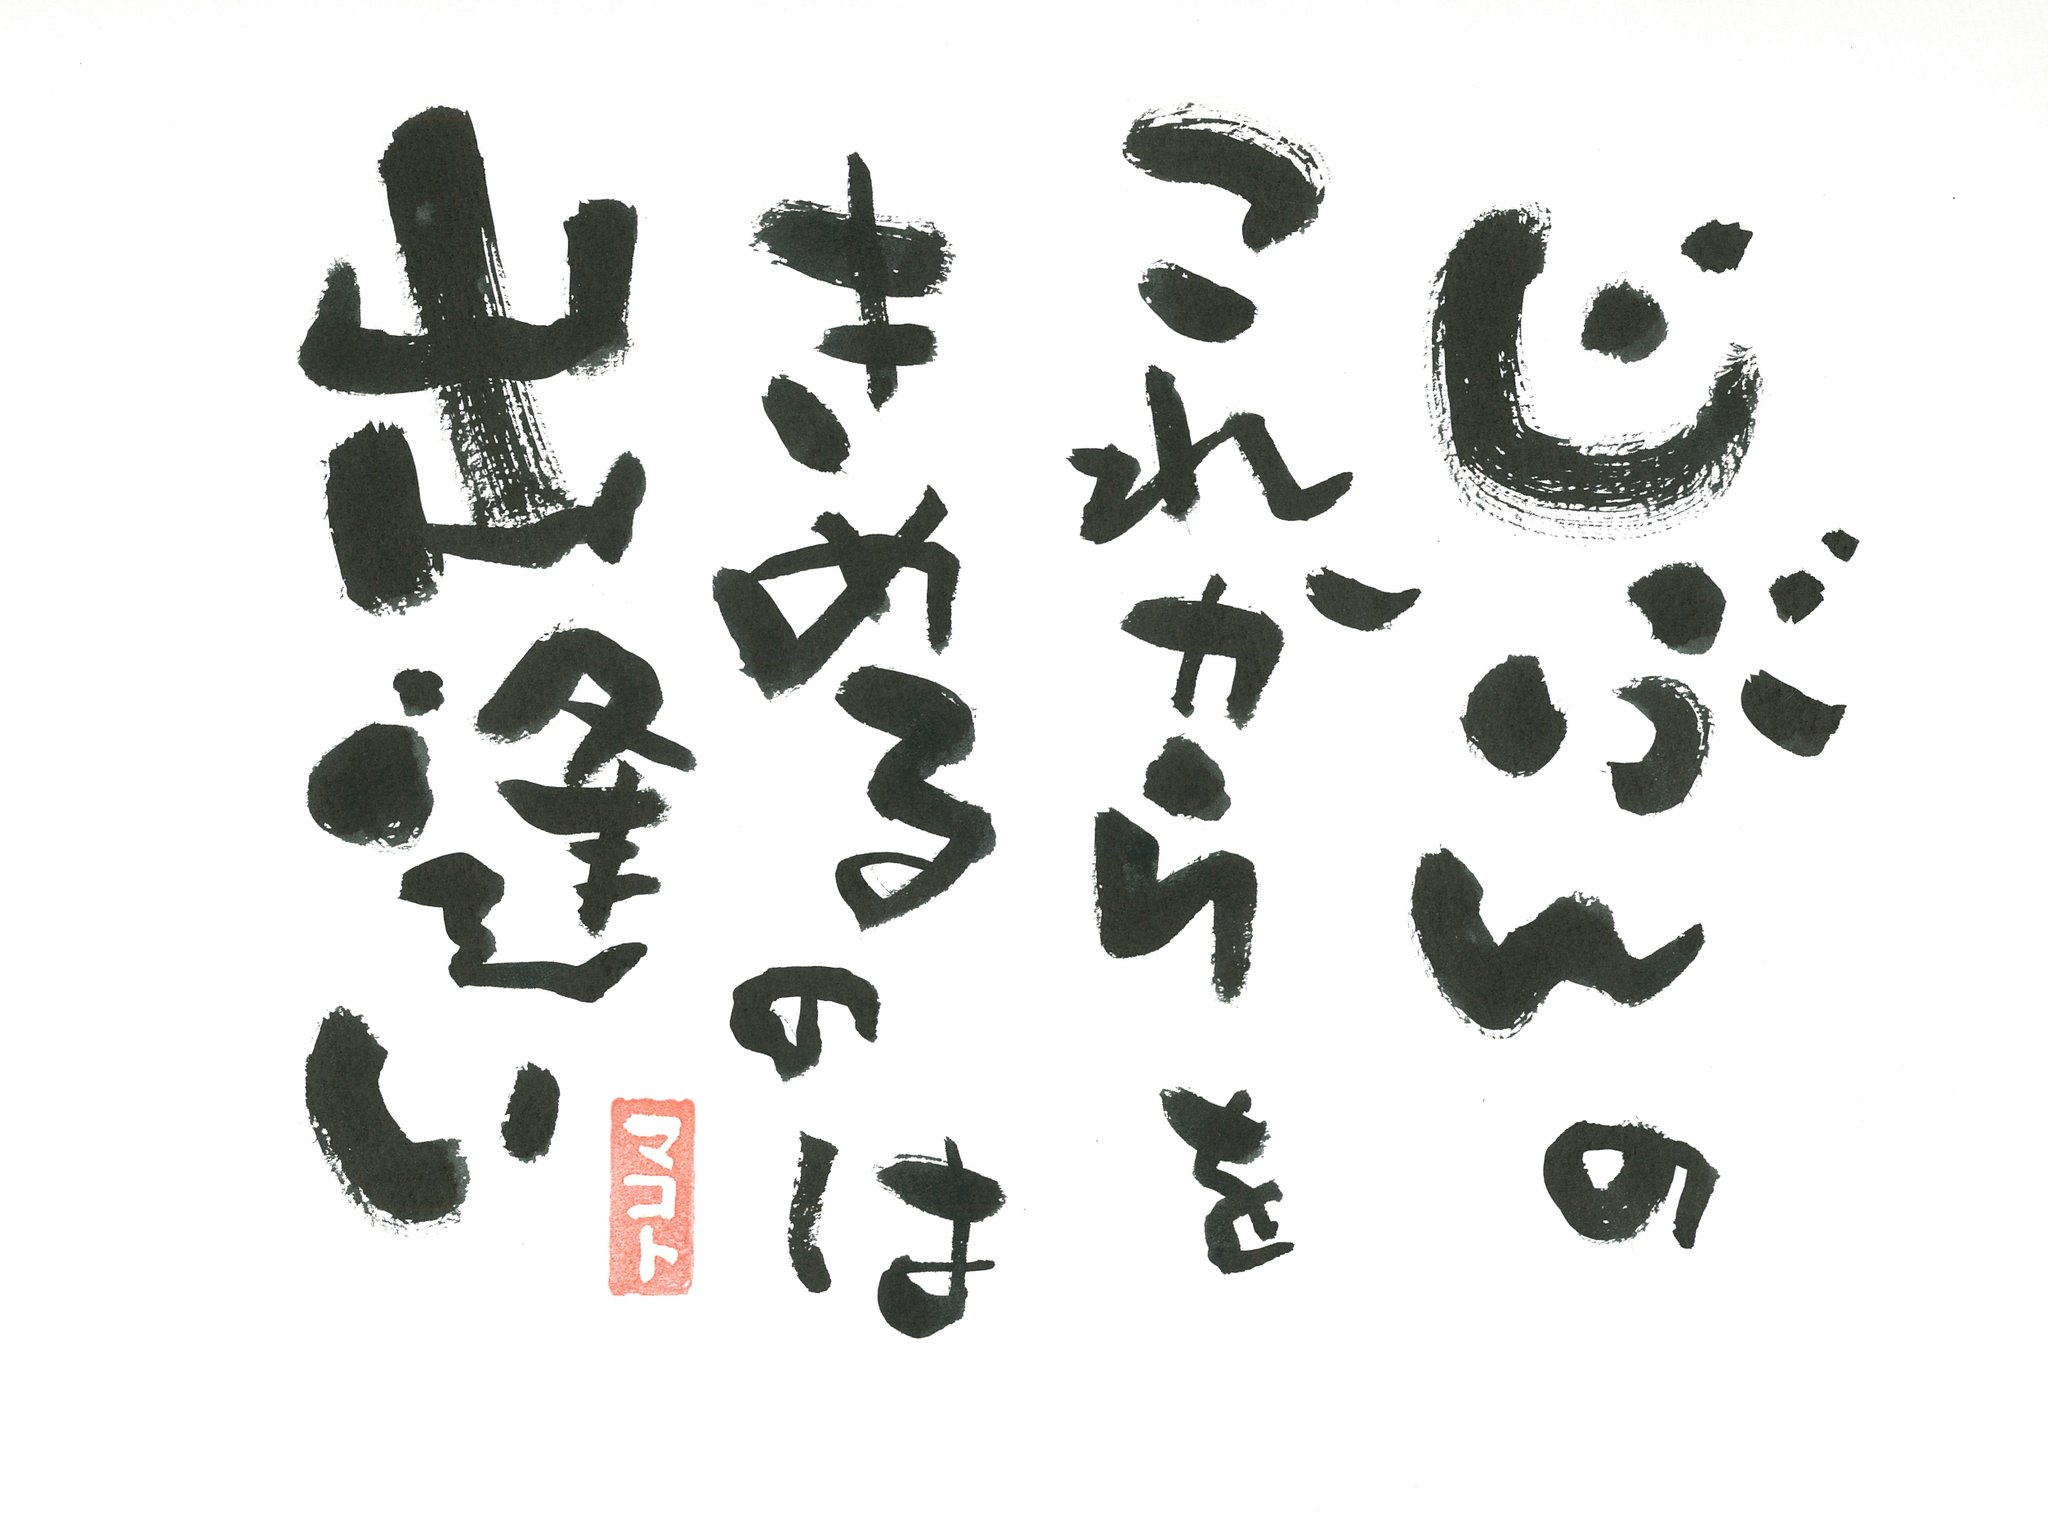 じぶんの
これからを
きめるのは
出逢い
マコト